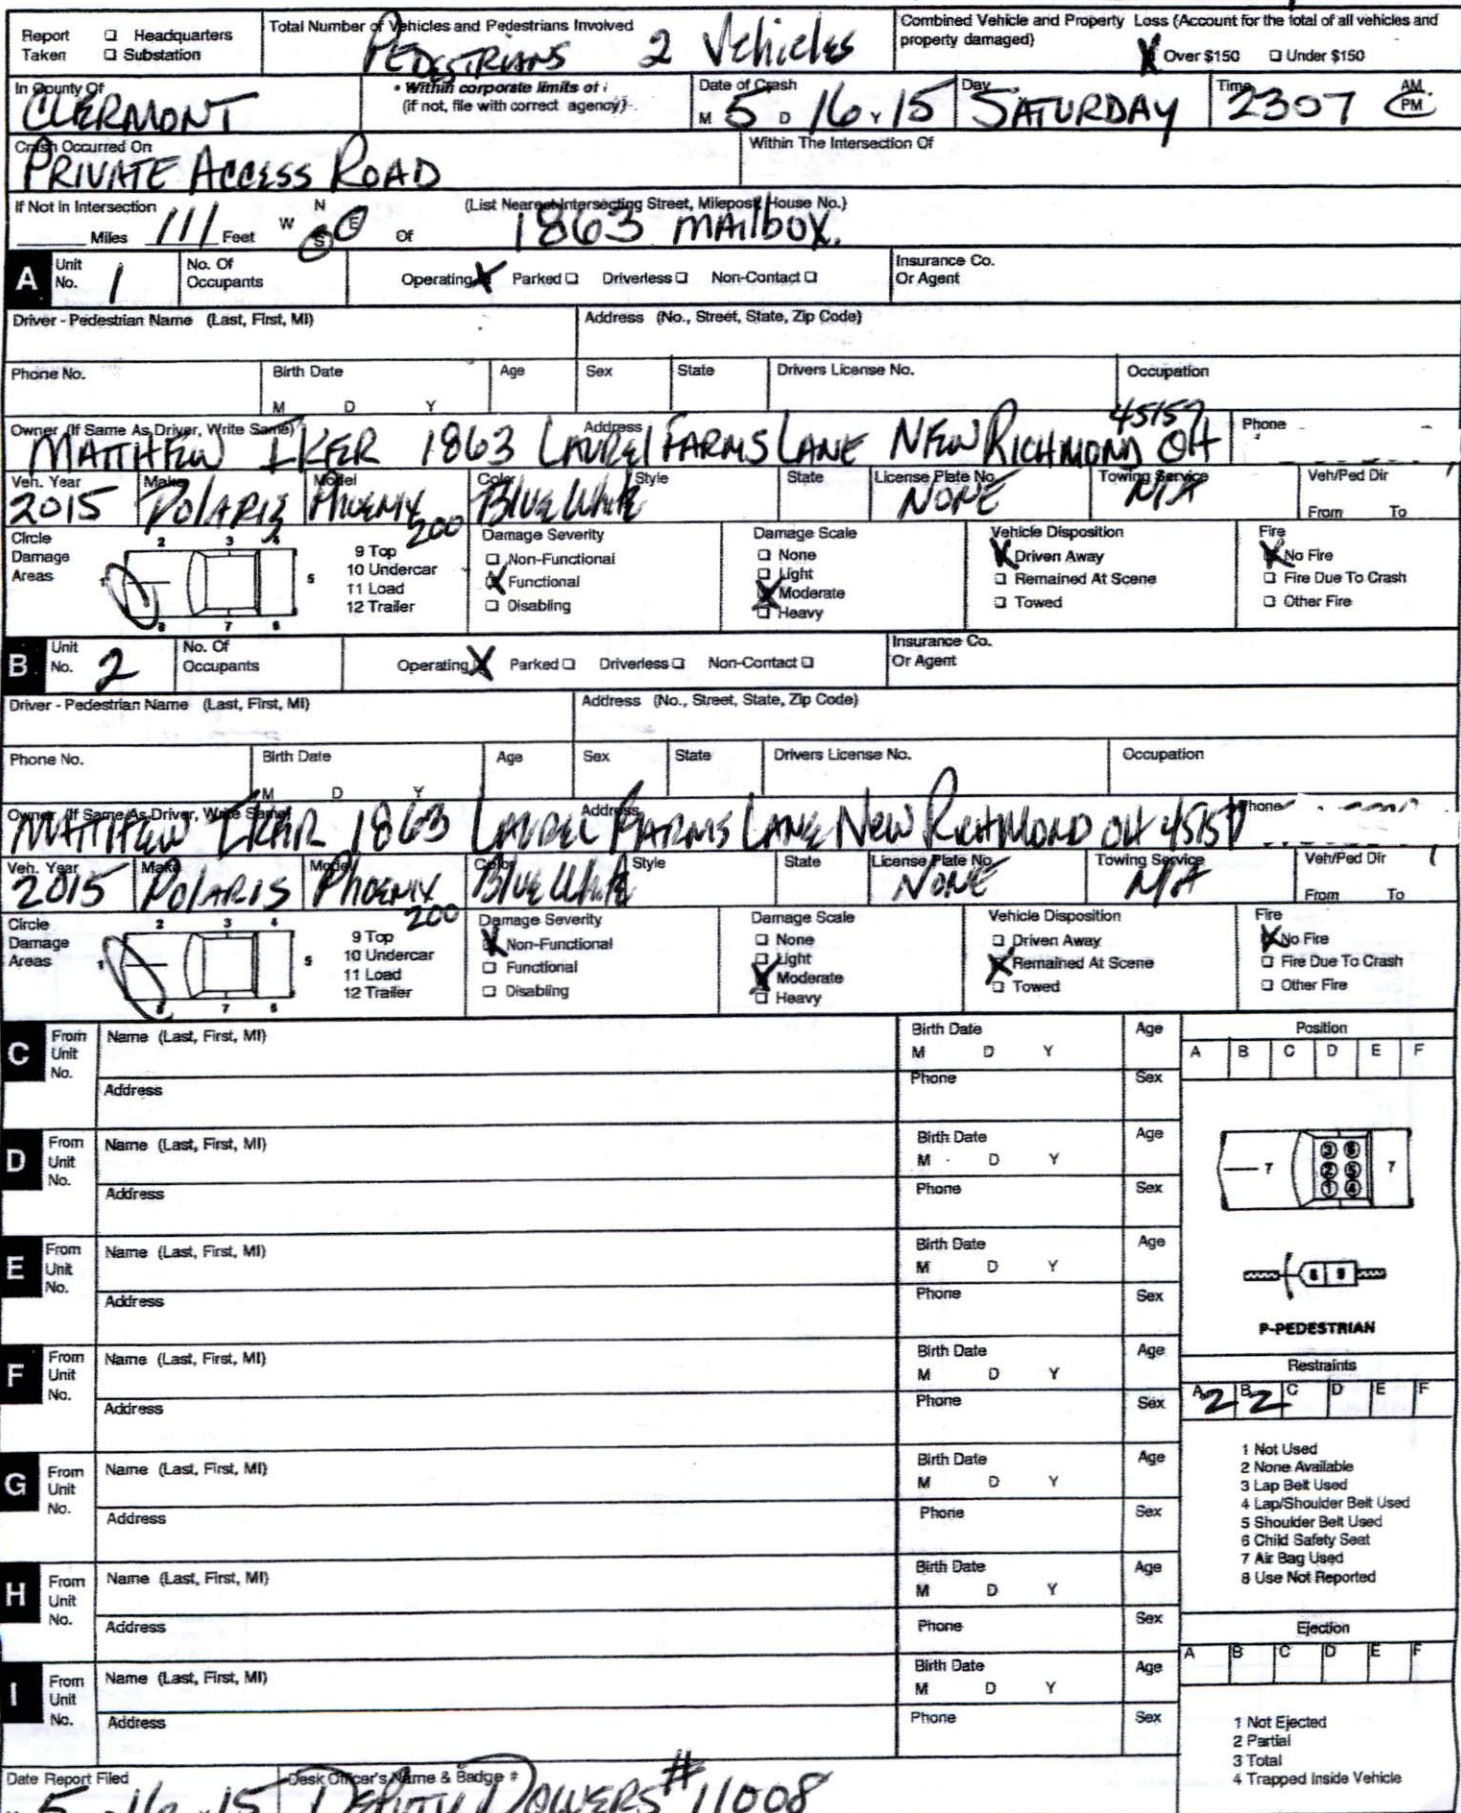 Report Taken ❑ Headquarters ❑ Substation
Total Number of Vehicles and Pedestrians Involved
PEDESTRIANS 2 Vehicles
Combined Vehicle and Property Loss (Account for the total of all vehicles and property damaged)
X Over $150 ❑ Under $150
In County Of
CLERMONT
• Within corporate limits of :
(if not, file with correct agency)
Date of Crash
M 5 D 16 Y 15
Day
SATURDAY
Time
2307 AM PM
Crash Occurred On
PRIVATE ACCESS ROAD
Within The Intersection Of
If Not In Intersection
____ Miles 111 Feet
N
W E
S
Of
(List Nearest Intersecting Street, Milepost, House No.)
1863 mailbox.
A Unit No. 1
No. Of Occupants
Operating X Parked ❑ Driverless ❑ Non-Contact ❑
Insurance Co. Or Agent
Driver - Pedestrian Name (Last, First, MI)
Address (No., Street, State, Zip Code)
Phone No. Birth Date M D Y Age Sex State Drivers License No. Occupation
Owner (If Same As Driver, Write Same) Address Phone
MATTHEW IKER 1863 LAUREL FARMS LANE NEW RICHMOND OH 45157
Veh. Year Make Model Color Style State License Plate No. Towing Service Veh/Ped Dir
2015 POLARIS Phoenix 200 Blue White NONE N/A From To
Circle Damage Areas
1 2 3 4 5 6 7 8
9 Top
10 Undercar
11 Load
12 Trailer
Damage Severity
❑ Non-Functional
X Functional
❑ Disabling
Damage Scale
❑ None
❑ Light
X Moderate
❑ Heavy
Vehicle Disposition
X Driven Away
❑ Remained At Scene
❑ Towed
Fire
X No Fire
❑ Fire Due To Crash
❑ Other Fire
B Unit No. 2
No. Of Occupants
Operating X Parked ❑ Driverless ❑ Non-Contact ❑
Insurance Co. Or Agent
Driver - Pedestrian Name (Last, First, MI)
Address (No., Street, State, Zip Code)
Phone No. Birth Date M D Y Age Sex State Drivers License No. Occupation
Owner (If Same As Driver, Write Same) Address Phone
MATTHEW IKER 1863 LAUREL FARMS LANE NEW RICHMOND OH 45157
Veh. Year Make Model Color Style State License Plate No. Towing Service Veh/Ped Dir
2015 POLARIS Phoenix 200 Blue White NONE N/A From To
Circle Damage Areas
1 2 3 4 5 6 7 8
9 Top
10 Undercar
11 Load
12 Trailer
Damage Severity
X Non-Functional
❑ Functional
❑ Disabling
Damage Scale
❑ None
❑ Light
X Moderate
❑ Heavy
Vehicle Disposition
❑ Driven Away
X Remained At Scene
❑ Towed
Fire
X No Fire
❑ Fire Due To Crash
❑ Other Fire
C From Unit No. Name (Last, First, MI) Birth Date M D Y Age
Address Phone Sex
D From Unit No. Name (Last, First, MI) Birth Date M D Y Age
Address Phone Sex
E From Unit No. Name (Last, First, MI) Birth Date M D Y Age
Address Phone Sex
F From Unit No. Name (Last, First, MI) Birth Date M D Y Age
Address Phone Sex
G From Unit No. Name (Last, First, MI) Birth Date M D Y Age
Address Phone Sex
H From Unit No. Name (Last, First, MI) Birth Date M D Y Age
Address Phone Sex
I From Unit No. Name (Last, First, MI) Birth Date M D Y Age
Address Phone Sex
Position
A B C D E F
7 3 6 7
2 5
1 4
8 9
P-PEDESTRIAN
Restraints
A 2 B 2 C D E F
1 Not Used
2 None Available
3 Lap Belt Used
4 Lap/Shoulder Belt Used
5 Shoulder Belt Used
6 Child Safety Seat
7 Air Bag Used
8 Use Not Reported
Ejection
A B C D E F
1 Not Ejected
2 Partial
3 Total
4 Trapped Inside Vehicle
Date Report Filed
5 16 15
Desk Officer's Name & Badge #
DEPUTY POWERS #11008